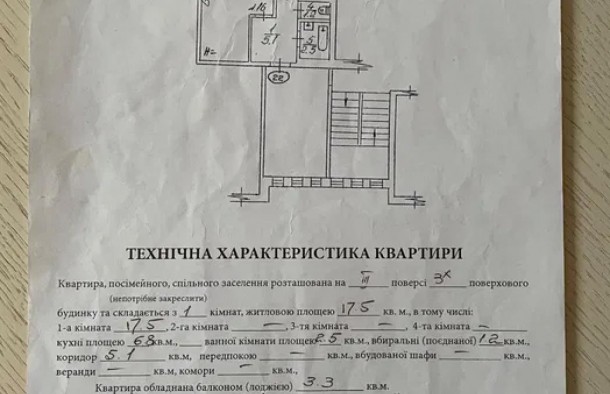 1.16
1
5.1
4
1.2
5
2.5
H=
22
ТЕХНІЧНА ХАРАКТЕРИСТИКА КВАРТИРИ
Квартира, посімейного, спільного заселення розташована на III поверсі 3х поверхового
(непотрібне закреслити)
будинку та складається з 1 кімнат, житловою площею 17.5 кв. м., в тому числі:
1-а кімната 17.5, 2-га кімната —, 3-тя кімната —, 4-та кімната —
кухні площею 6.8 кв.м., ванної кімнати площею 2.5 кв.м., вбиральні (поєднаної) 1.2 кв.м.,
коридор 5.1 кв.м, передпокою — кв.м., вбудованої шафи — кв.м.,
веранди — кв.м, комори — кв.м.,
Квартира обладнана балконом (лоджією) 3.3 кв.м.